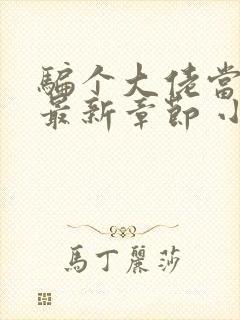 骗个大佬當
最新章節 小
馬丁麗莎